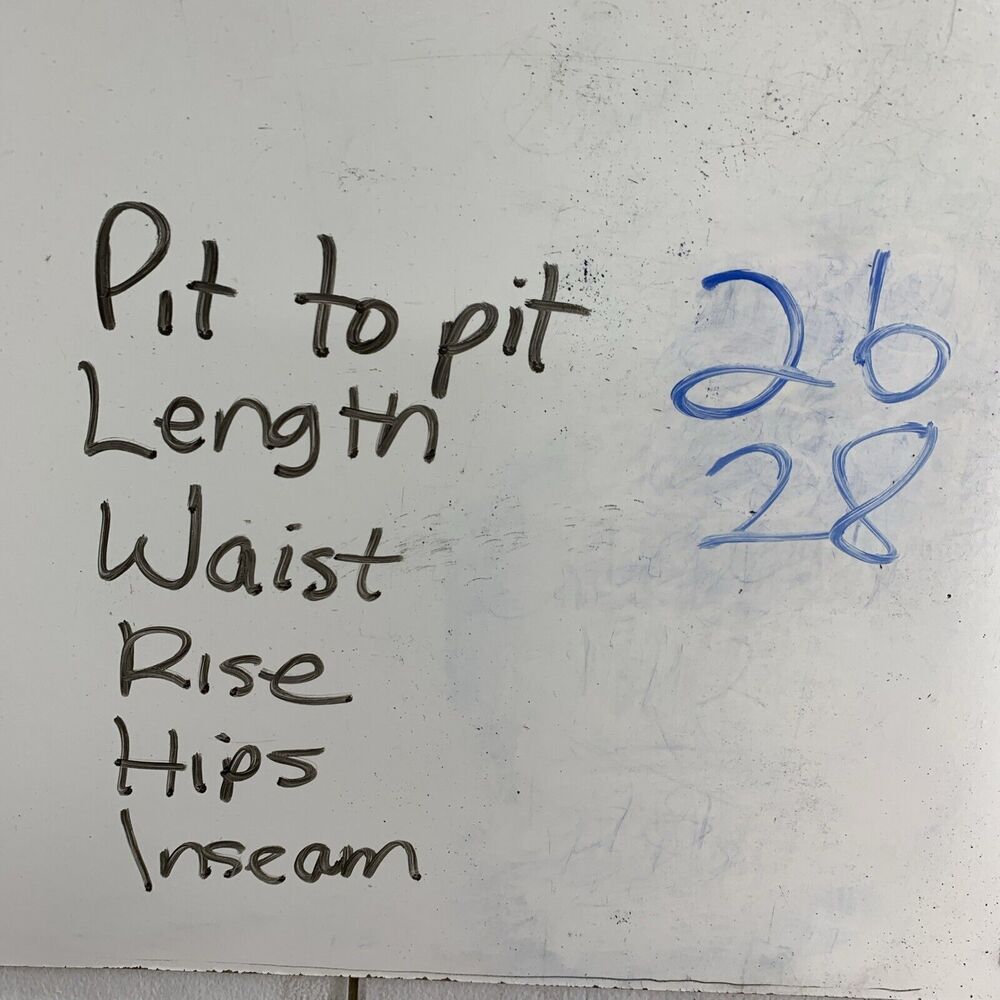 Pit to pit 26
Length 28
Waist
Rise
Hips
Inseam